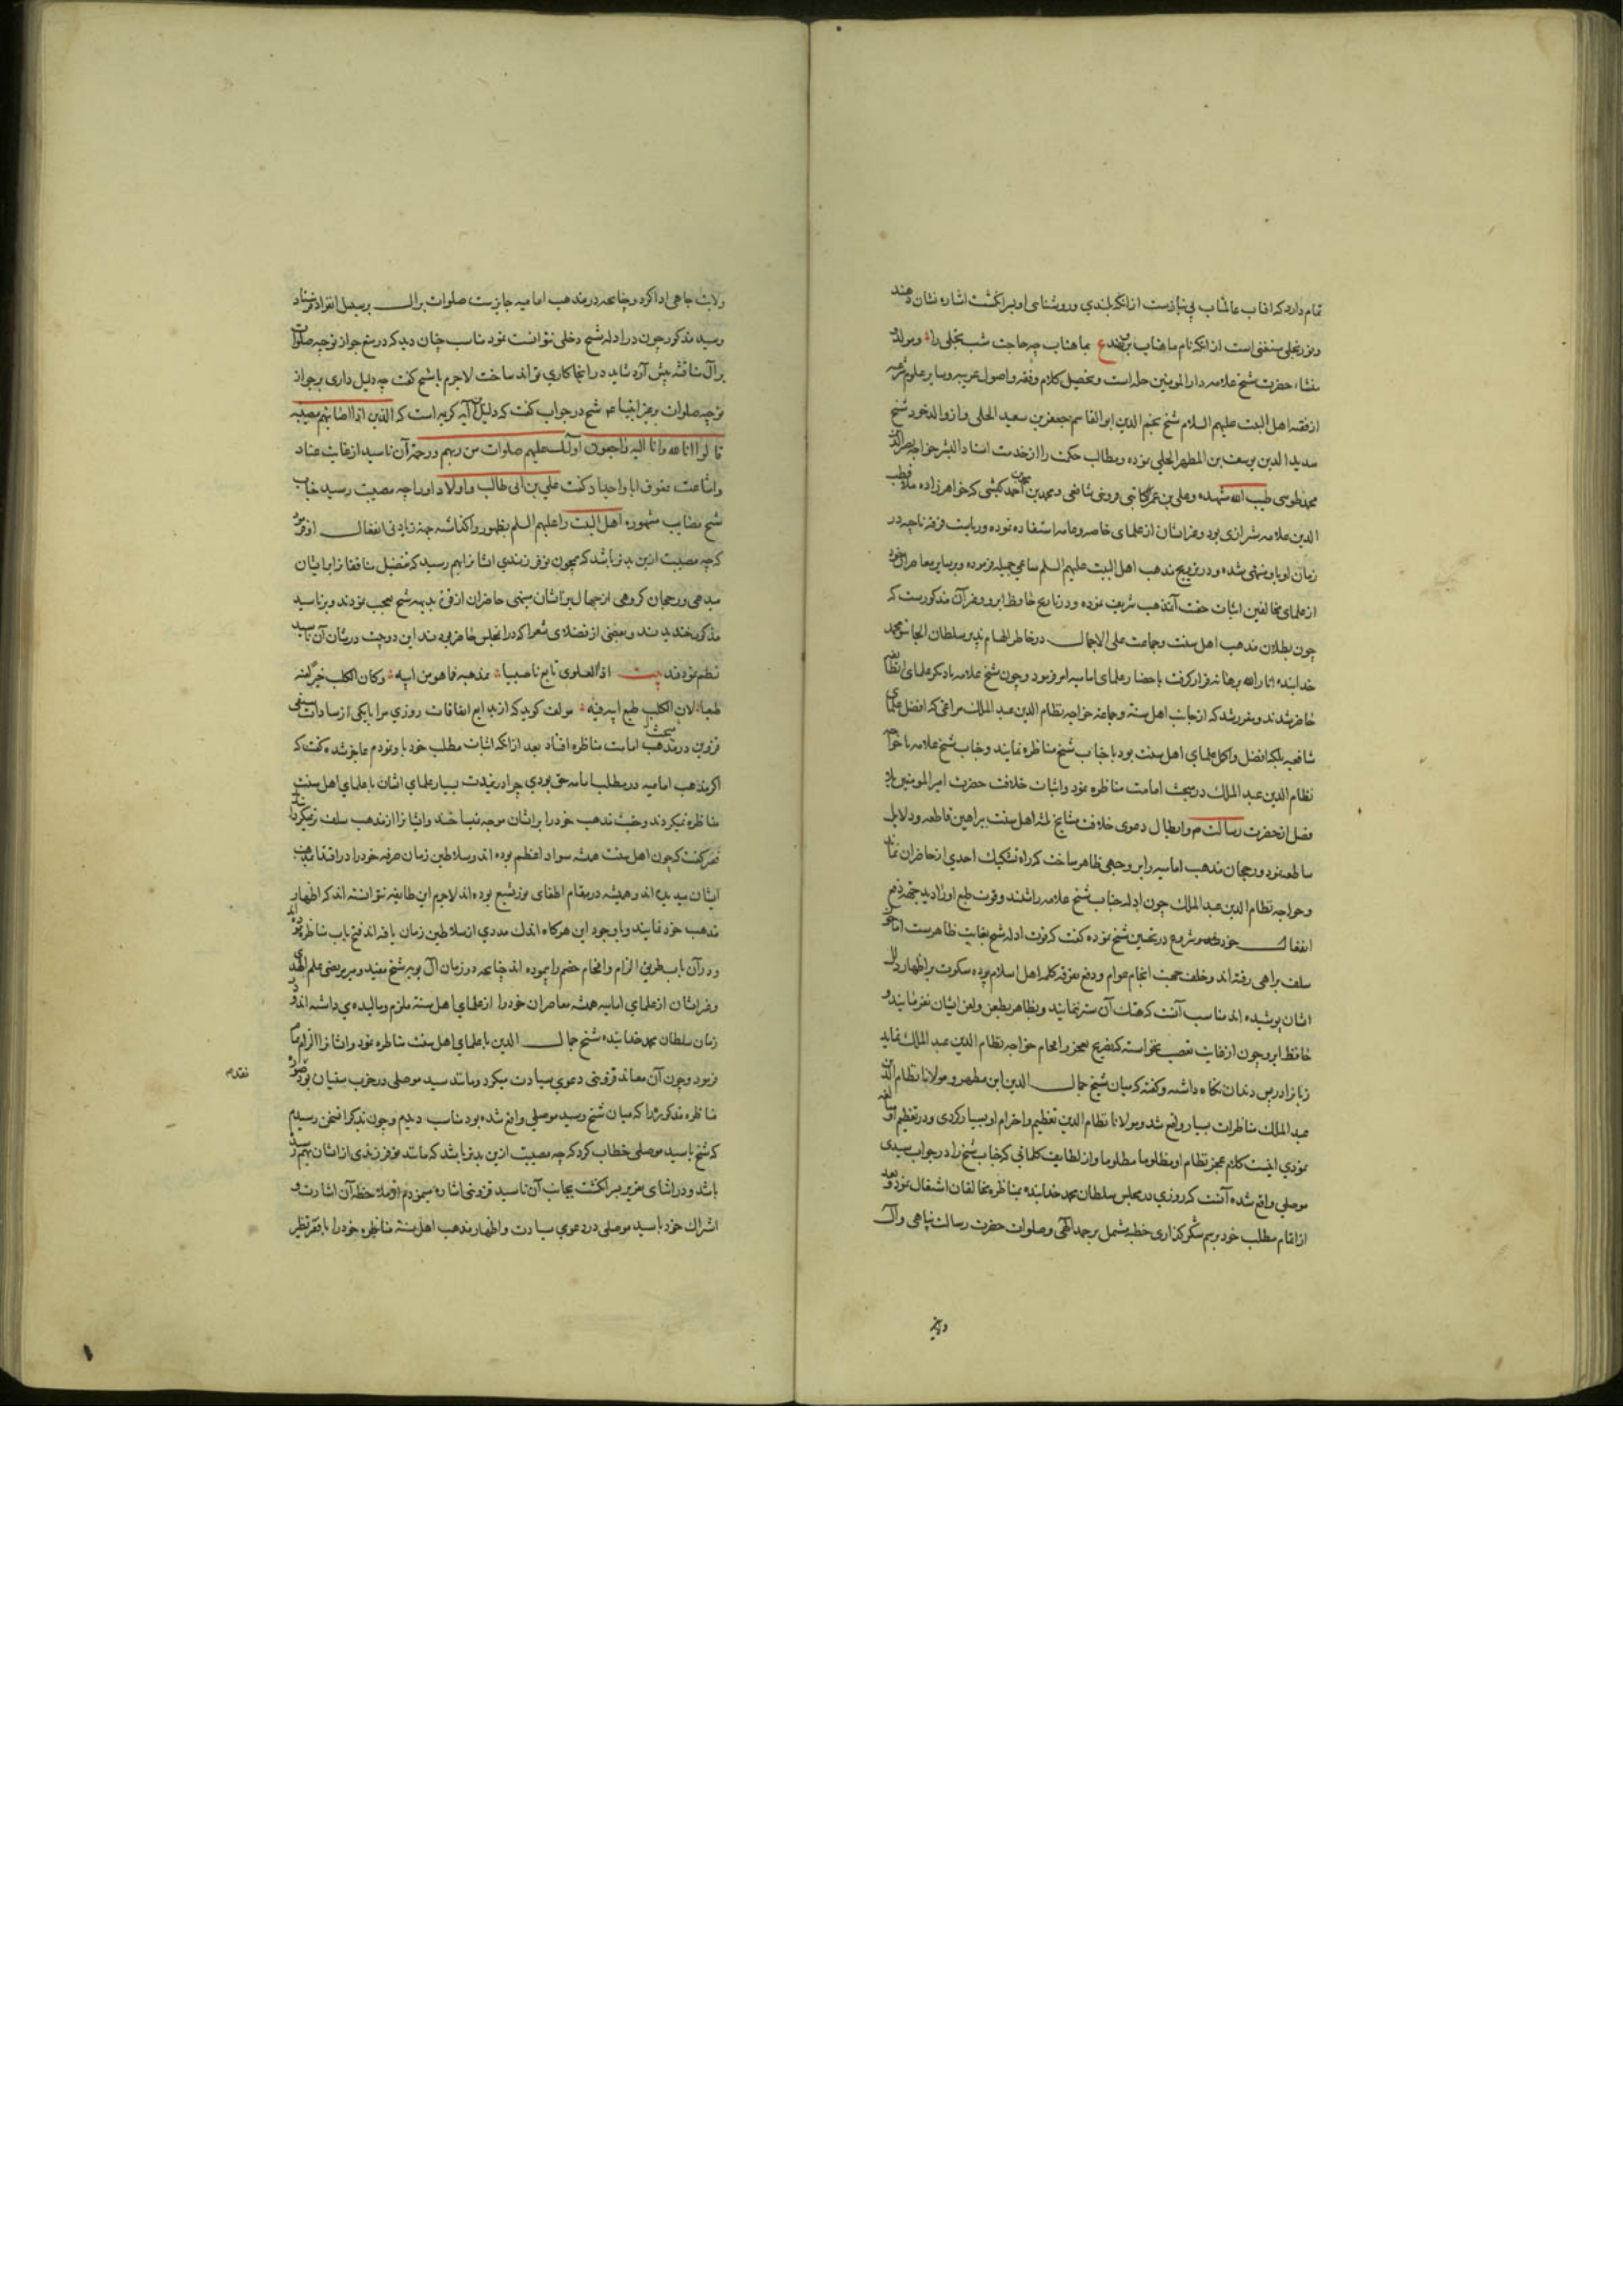 تمام دارد که افتاب عالمتاب بی نیازست از انکه بلندی و روشنائی او بر انگشت اشاره نشان دهند
و نور تجلی مستغنی است از انکه نام ماهتاب برند ع بماهتاب چه حاجت شب تجلی را و مولد و
منشاء حضرت شیخ علامه دار المومنین حله است و تحصیل کلام و فقه و اصول عربیه و سایر علوم شرعیه
از فقهاء اهل البیت علیهم السلام شیخ نجم الدین ابو القاسم جعفر بن سعید الحلی و از والد خود شیخ
سدید الدین یوسف بن المطهر الحلی نموده و مطالب حکمت را از خدمت استاد البشر خواجه نصیر الدین
محمد طوسی طیب الله مشهده و علی بن عمر کاتبی قزوینی شافعی و محمد بن محمد بن احمد کیشی که خواهرزاده ملا قطب
الدین علامه شیرازی بود و غیر ایشان از علمای خاصه و عامه استفاده نموده و ریاست فرقه ناجیه در
زمان او باو منتهی شده و در ترویج مذهب اهل البیت علیهم السلم مساعی جمیله فرموده و بر سایر معاصران خود
از علمای مخالفین اثبات حقیت آنمذهب شریف نموده و در تاریخ حافظ ابرو و غیر آن مذکورست که
چون بطلان مذهب اهل سنت و جماعت علی الاجمال در خاطر الهام پذیر سلطان الجایتو محمد
خدابنده انار الله برهانه قرار گرفت باحضار علمای امامیه امر فرمود و چون شیخ علامه با دیگر علمای
حاضر شدند و مقرر شد که از جانب اهل سنة و جماعة خواجه نظام الدین عبد الملک مراغی که افضل علمای
شافعیه بلکه افضل و اکمل علمای اهل سنت بود با جناب شیخ مناظره نمایند و جناب شیخ علامه با خواجه
نظام الدین عبد الملک در مبحث امامت مناظره نمود و اثبات خلافت حضرت امیر المومنین بلا
فصل از حضرت رسالت م و ابطال دعوی خلافت مشایخ ثلثه اهل سنت ببراهین قاطعه و دلایل
ساطعه نمود و رجحان مذهب امامیه را بر وجهی ظاهر ساخت که راه تشکیک احدی از حاضران نماند
و خواجه نظام الدین عبد الملک چون ادله جناب شیخ علامه را شنید و قوت طبع او را دید جهت دفع
انفعال خود شروع در تحسین شیخ نموده گفت که قوت ادله شیخ بغایت ظاهرست اما چون
سلف براهی رفته اند و خلف جهت الجام عوام و دفع تفرقه کلمه اهل اسلام سکوت بر اظهار زلل
ایشان پوشیده اند مناسب آنست که هتک آن ستر ننمایند و بظاهر بطعن و لعن ایشان نفرمایند و
حافظ ابرو چون از غایت تعصب نخواسته که تصریح بعجز و الحام خواجه نظام الدین عبد الملک نماید
زبان را در پس دندان نگاه داشته و گفته که میان شیخ جمال الدین ابن مطهر و مولانا نظام الدین
عبد الملک مناظرات بسیار واقع شد و مولانا نظام الدین تعظیم و احترام او بسیار کردی و در تعظیم او مبالغه
نمودی و از لطایف کلماتی که جناب شیخ را در جواب سیدی
موصلی واقع شده آنست که روزی در مجلس سلطان محمد خدابنده بمناظره مخالفان اشتغال نمود و بعد
از اتمام مطلب خود برسم شکر گذاری خطبه مشتمل بر حمد الهی و صلوات حضرت رسالت پناهی و آل
ولایت جاهی ادا کرد و چنانچه در مذهب امامیه جایزست صلوات بر ال بر سبیل انفراد فرستاد
و سید مذکور چون در ادله شیخ دخلی نتوانست نمود مناسب چنان دید که در منع جواز توجیه صلوات
بر آل مناقشه پیش آرد شاید در انجا کاری تواند ساخت لاجرم با شیخ گفت چه دلیل داری بر جواز
توجیه صلوات بر غیر انبیا ع م شیخ در جواب گفت که دلیل من آیه کریمه است که الذین اذا اصابتهم مصیبة
قالوا انا لله وانا الیه راجعون اولئک علیهم صلوات من ربهم ورحمة آن ناسید از غایت عناد
گفت علی بن ابی طالب و اولاد او را چه مصیبت رسید جناب
شیخ مصایب مشهوره اهل البیت را علیهم السلم بظهور واگذاشته جهة زیادتی انفعال او فرمود
که چه مصیبت ازین بدتر باشد که همچون تو فرزندی ایشانرا بهم رسید که تفضیل منافقانرا بر ایشان
میدهی و رجحان گروهی از جهال بر ایشان مینهی حاضران از قوت بدیهه شیخ تعجب نمودند و بر ناسید
مذکور خندیدند و بعضی از فضلای شعرا که در انمجلس حاضر بودند این دو بیت در شان آن ناسید
نظم نمودند بیت اذا العلوی تابع ناصبیا بمذهبه فما هو من ابیه وکان الکلب خیرا منه
طبعا لان الکلب طبع ابیه فیه مولف گوید که از بدایع اتفاقات روزی مرا با یکی از سادات سیفی
قزوین در مبحث امامت مناظره افتاد بعد از انکه اثبات مطلب خود باو نمودم عاجز شده گفت که
اگر مذهب امامیه در مطلب امامه حق بودی چرا در مدت بسیار علمای ایشان با علمای اهل سنت
مناظره نمیکردند و حقیت مذهب خود را بر ایشان موجه نمیساختند و ایشانرا از مذهب سلف
فقیر گفت که چون اهل سنت همیشه سواد اعظم بوده اند و سلاطین زمان صرفه خود را در اقتدا بمذهب
ایشان میدیده اند و همیشه در مقام اطفای نور تشیع بوده اند لاجرم این طایفه نتوانسته اند که اظهار
مذهب خود نمایند و با وجود این هرگاه اندک مددی از سلاطین زمان یافته اند فتح باب مناظره نموده اند
و در آن باب طریق الزام و افحام خصم را پیموده اند چنانچه در زمان آل بویه شیخ مفید و میر مرتضی علم الهدی
و غیر ایشان از علمای امامیه همیشه معاصران خود را از علمای اهل سنة ملزم و مالیده میداشته اند و در
زمان سلطان محمد خدابنده شیخ جمال الدین با علمای اهل سنت مناظره نمود و ایشانرا الزام تمام
فرمود و چون آن معاند قزوینی دعوی سیادت میکرد و مانند سید موصلی در حزب سفیان بود
مناظره مذکوره را که میان شیخ و سید موصلی واقع شده بود مناسب دیدم و چون بذکر این سخن رسیدم
که شیخ با سید موصلی خطاب کرد که چه مصیبت ازین بدتر باشد که مانند تو فرزندی از ایشان بهم رسیده
باشد و در اثنای تقریر بسر انگشت بجانب آن ناسید قزوینی اشاره مینمودم او ملاحظه آن اشارت و
اشتراک خود با سید موصلی در دعوی سیادت و اظهار مذهب اهل سنة مناظره خود را با فقیر نظیر